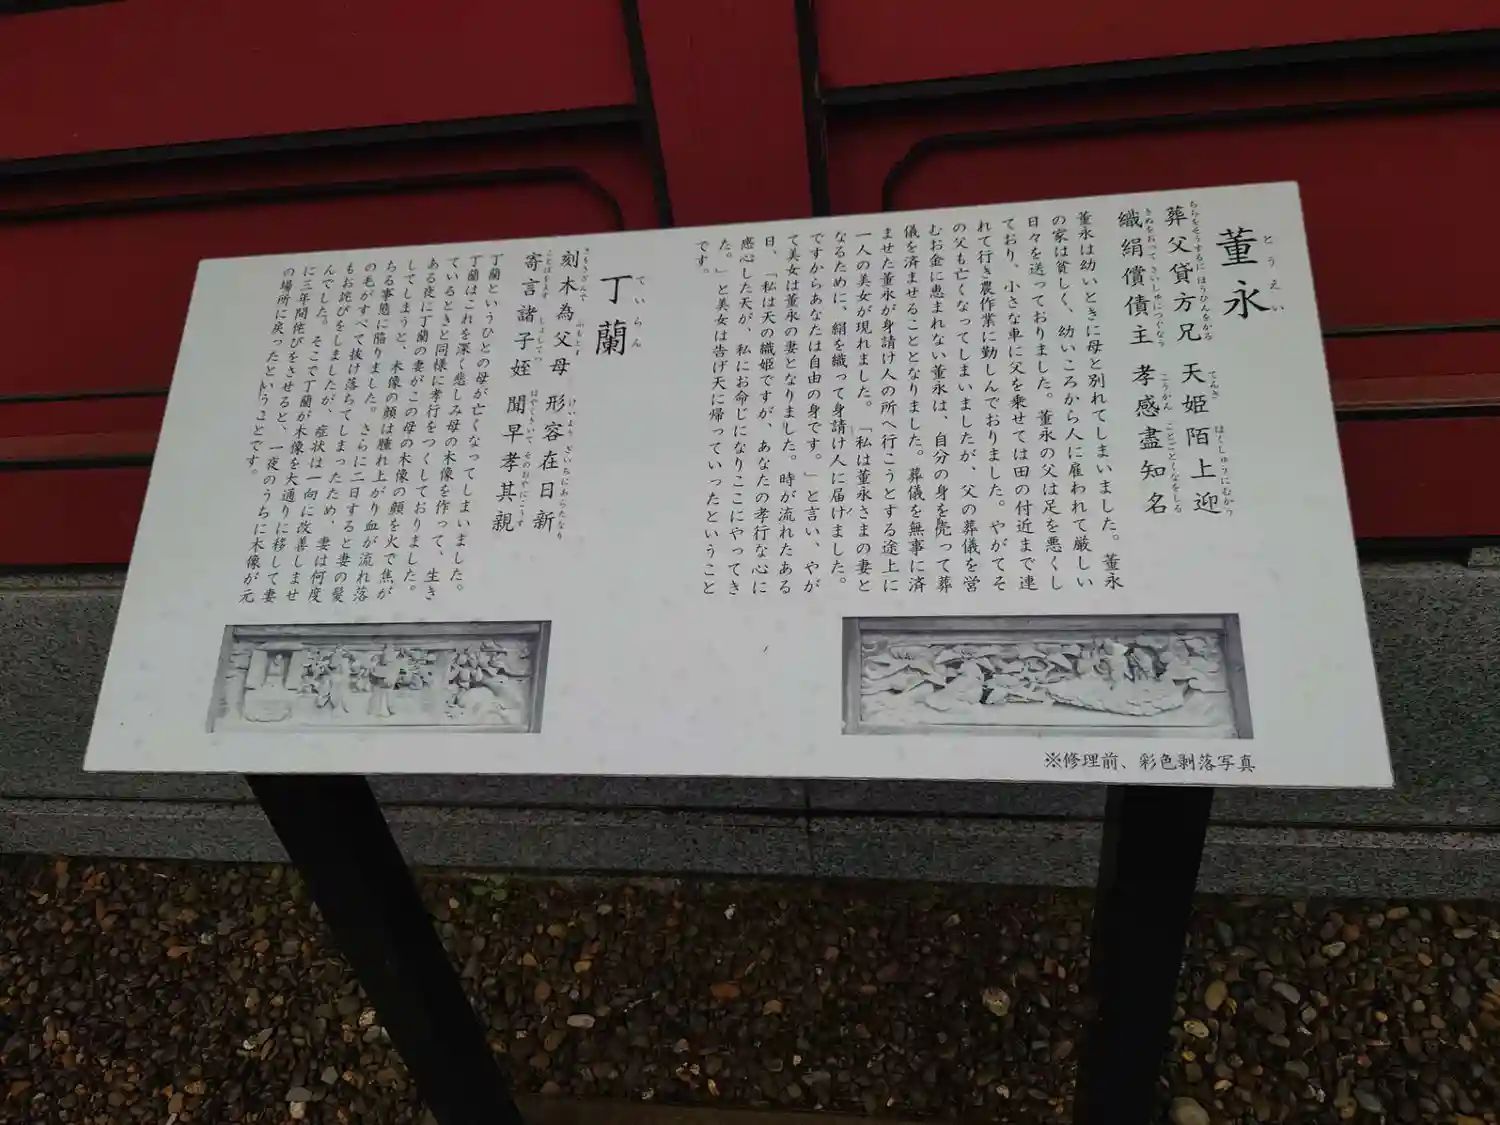 董永
とうえい
葬父貸方兄 天姫陌上迎
ちちをそうするにほうひんをかる てんき はくしゅうにむかう
織絹償債主 孝感盡知名
きぬをおって さいしゅにつぐなう こうかん ことごとくなをしる
董永は幼いときに母と別れてしまいました。董永
の家は貧しく、幼いころから人に雇われて厳しい
日々を送っておりました。董永の父は足を悪くし
ており、小さな車に父を乗せては田の付近まで連
れて行き農作業に勤しんでおりました。やがてそ
の父も亡くなってしまいましたが、父の葬儀を営
むお金に恵まれない董永は、自分の身を売って葬
儀を済ませることとなりました。葬儀を無事に済
ませた董永が身請け人の所へ行こうとする途上に
一人の美女が現れました。「私は董永さまの妻と
なるために、絹を織って身請け人に届けました。
ですからあなたは自由の身です。」と言い、やが
て美女は董永の妻となりました。時が流れたある
日、「私は天の織姫ですが、あなたの孝行な心に
感心した天が、私にお命じになりここにやってき
た。」と美女は告げ天に帰っていったということ
です。
丁蘭
ていらん
刻木為父母 形容在日新
きをきざんで ふもとす けいよう ざいちにあらたなり
寄言諸子姪 聞早孝其親
ことばをよす しょしてつ はやくきいて そのおやにこうす
丁蘭というひとの母が亡くなってしまいました。
丁蘭はこれを深く悲しみ母の木像を作って、生き
ているときと同様に孝行をつくしておりました。
ある夜に丁蘭の妻がこの母の木像の顔を火で焦が
してしまうと、木像の顔は腫れ上がり血が流れ落
ちる事態に陥りました。さらに二日すると妻の髪
の毛がすべて抜け落ちてしまったため、妻は何度
もお詫びをしましたが、症状は一向に改善しませ
んでした。そこで丁蘭が木像を大通りに移して妻
に三年間侘びをさせると、一夜のうちに木像が元
の場所に戻ったということです。
※修理前、彩色剥落写真